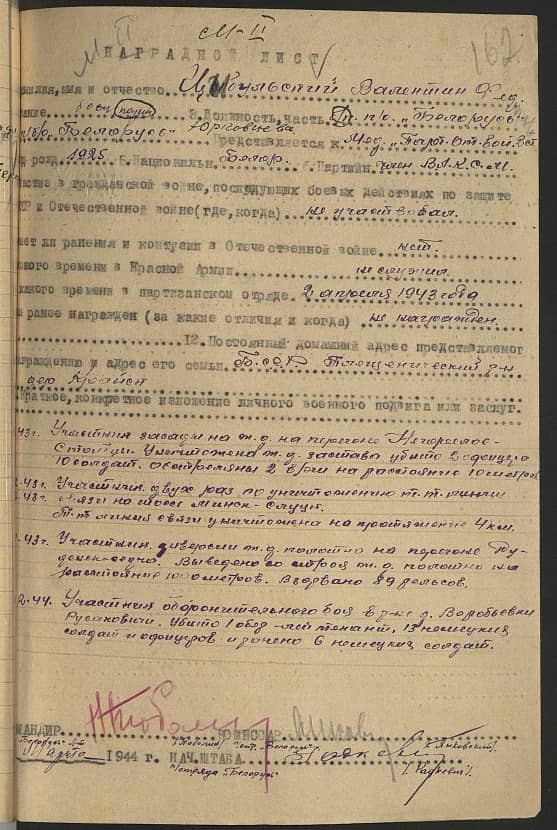 М-II
М II
162
НАГРАДНОЙ ЛИСТ
милия, имя и отчество Цыбульский Валентин Фед
вание боец 3. Должность, часть п/о. "Беларусь"
п/бр. "Беларусь" Представляется к Мед. "Парт. От. вой
д рожд 1925 5. Национальн. Белор. Партийн. член В.Л.К.С.М.
частие в гражданской войне, последующих боевых действиях по защите
СР и Отечественной войне (где, когда) не участвовал.
меет ли ранения и контузии в Отечественной войне нет
кого времени в Красной Армии не служил
какого времени в партизанском отряде 2 апреля 1943 года
м ранее награжден (за какие отличия и когда) не награжден.
12. Постоянный домашний адрес представляемог
награждению и адрес его семьи Б.С.С.Р. р-н
дер
Краткое, конкретное изложение личного военного подвига или заслуг.
43 г. Участник засады на ж.д. на перегоне Негорелое-
Столбцы. Уничтожена ж.д. застава убито офицера
10 солдат. 2 на расстояние 10 метров
.43 г. Участник двух раз по уничтожению т.т. линии
.43 г. связи на шоссе Минск-Слуцк.
Т.Т. линия связи уничтожена на протяжение 4 км.
.43 г. Участник диверсии ж.д. полотна на перегоне
Выведено из строя ж.д. полотно на
расстояние метров. Взорвано 89 рельсов.
2.44. Участник оборонительного боя в р-не д. Воробьевки
Русаковичи. Убито 1 обер-лейтенант, 13 немецких
солдат и офицеров и ранено 6 немецких солдат.
МАНДИР КОМИССАР
"Беларусь" /Янковский/
1944 г. НАЧ. ШТАБА
отряда "Беларусь" /Радкевич/